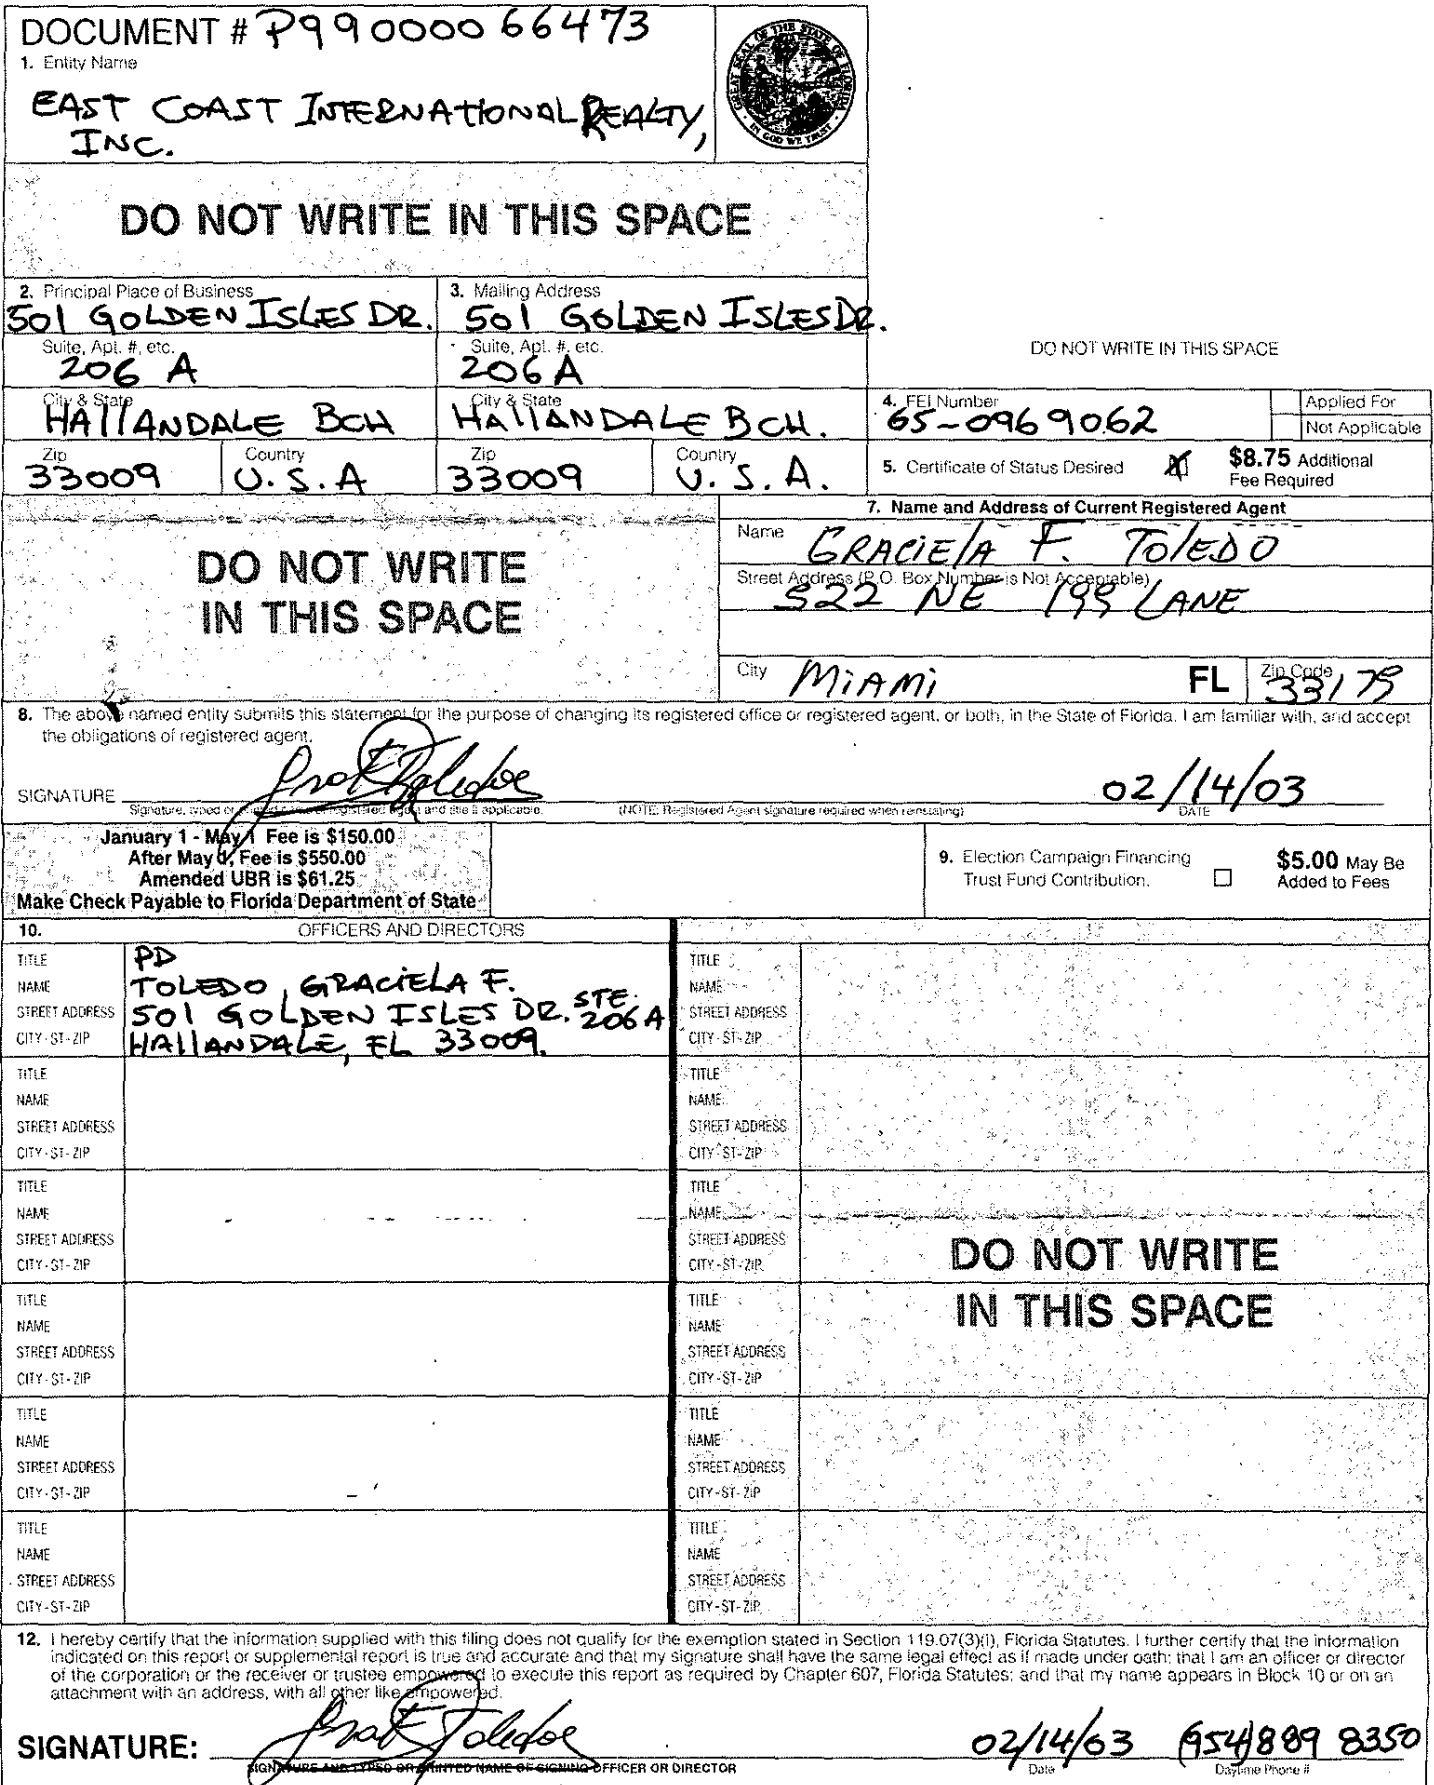 DOCUMENT # P99000066473
1. Entity Name
EAST COAST INTERNATIONAL REALTY,
INC.
GREAT SEAL OF THE STATE OF FLORIDA
IN GOD WE TRUST
DO NOT WRITE IN THIS SPACE
2. Principal Place of Business
501 GOLDEN ISLES DR.
3. Mailing Address
501 GOLDEN ISLES DR.
Suite, Apt. #, etc.
206 A
Suite, Apt. #, etc.
206 A
DO NOT WRITE IN THIS SPACE
City & State
HAllANDALE BCH
City & State
HAllANDALE BCH.
4. FEI Number
65-0969062
Applied For
Not Applicable
Zip
33009
Country
U.S.A
Zip
33009
Country
U.S.A.
5. Certificate of Status Desired
$8.75 Additional
Fee Required
DO NOT WRITE
IN THIS SPACE
7. Name and Address of Current Registered Agent
Name GRACIElA F. TOlEDO
Street Address (P.O. Box Number is Not Acceptable)
522 NE 199 LANE
City MiAMi FL Zip Code 33179
8. The above named entity submits this statement for the purpose of changing its registered office or registered agent, or both, in the State of Florida. I am familiar with, and accept
the obligations of registered agent.
SIGNATURE 02/14/03
Signature, typed or printed name of registered agent and title if applicable. (NOTE: Registered Agent signature required when reinstating) DATE
January 1 - May 1 Fee is $150.00
After May 1, Fee is $550.00
Amended UBR is $61.25
Make Check Payable to Florida Department of State
9. Election Campaign Financing
Trust Fund Contribution.
$5.00 May Be
Added to Fees
10. OFFICERS AND DIRECTORS
TITLE PD
NAME TOLEDO, GRACiELA F.
STREET ADDRESS 501 GOLDEN ISLES DR. STE. 206 A
CITY-ST-ZIP HAllANDALE, FL 33009.
TITLE
NAME
STREET ADDRESS
CITY-ST-ZIP
TITLE
NAME
STREET ADDRESS
CITY-ST-ZIP
TITLE
NAME
STREET ADDRESS
CITY-ST-ZIP
TITLE
NAME
STREET ADDRESS
CITY-ST-ZIP
TITLE
NAME
STREET ADDRESS
CITY-ST-ZIP
TITLE
NAME
STREET ADDRESS
CITY-ST-ZIP
TITLE
NAME
STREET ADDRESS
CITY-ST-ZIP
TITLE
NAME
STREET ADDRESS
CITY-ST-ZIP
DO NOT WRITE
IN THIS SPACE
TITLE
NAME
STREET ADDRESS
CITY-ST-ZIP
TITLE
NAME
STREET ADDRESS
CITY-ST-ZIP
TITLE
NAME
STREET ADDRESS
CITY-ST-ZIP
12. I hereby certify that the information supplied with this filing does not qualify for the exemption stated in Section 119.07(3)(i), Florida Statutes. I further certify that the information
indicated on this report or supplemental report is true and accurate and that my signature shall have the same legal effect as if made under oath; that I am an officer or director
of the corporation or the receiver or trustee empowered to execute this report as required by Chapter 607, Florida Statutes; and that my name appears in Block 10 or on an
attachment with an address, with all other like empowered.
SIGNATURE: 02/14/03 (954) 889 8350
SIGNATURE AND TYPED OR PRINTED NAME OF SIGNING OFFICER OR DIRECTOR Date Daytime Phone #